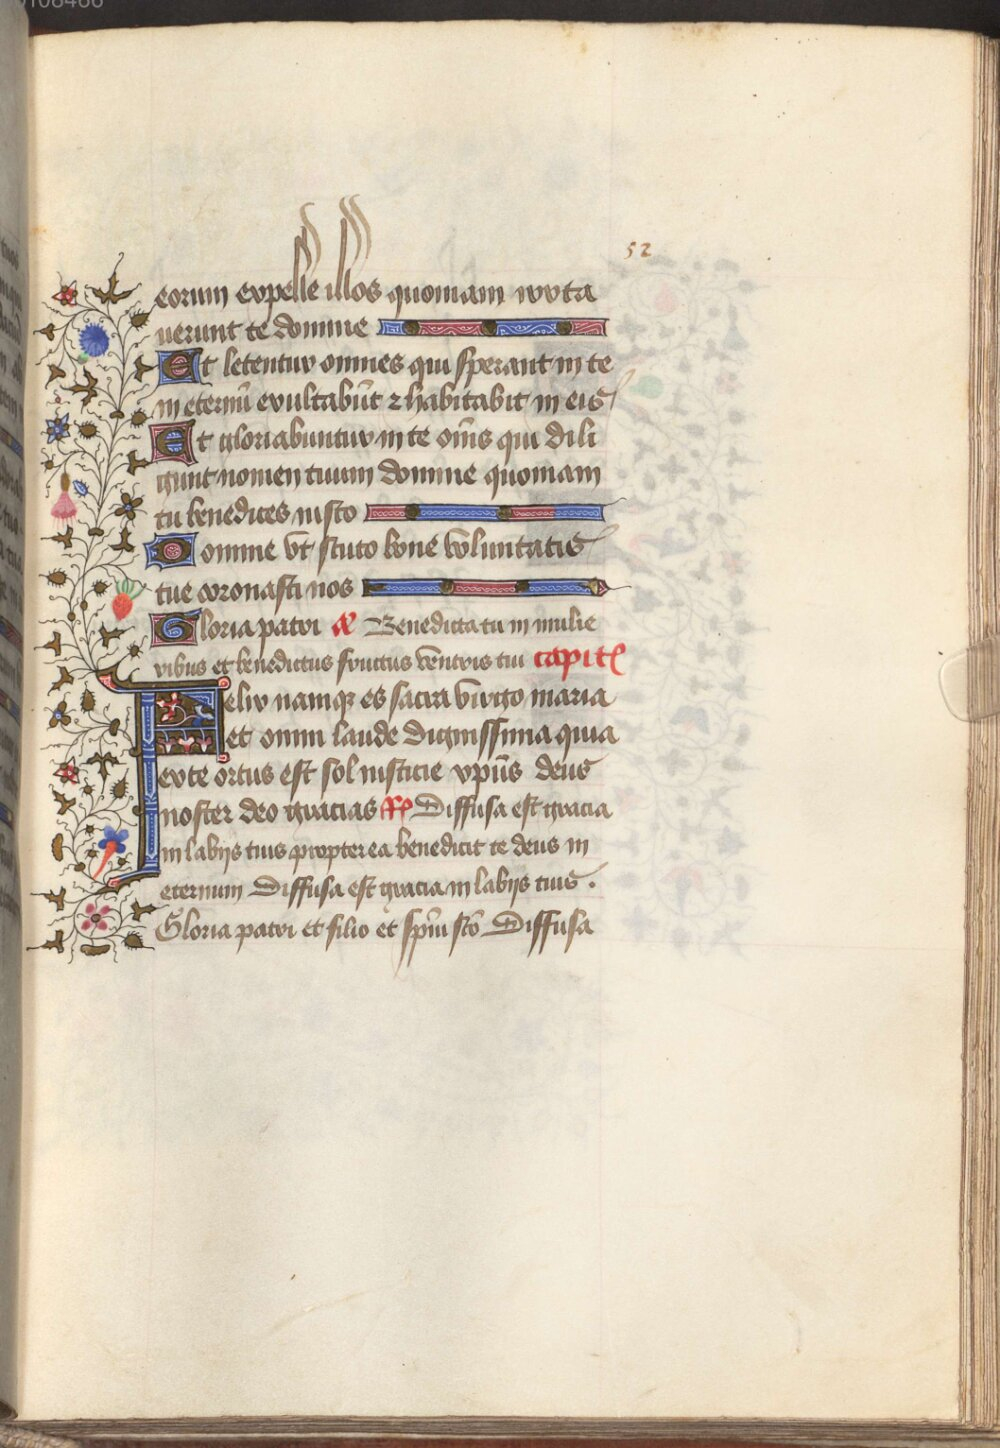 52
eorum expelle illos quoniam irrita
uerunt te domine
Et letentur omnes qui sperant in te
in eternū exultabūt ⁊ habitabit in eis
Et gloriabuntur in te om̄s qui dili
gunt nomen tuum domine quoniam
tu benedices iusto
Domine vt scuto bone voluntatis
tue coronasti nos
Gloria patri Benedicta tu in mulie
ribus et benedictus fructus ventris tui capitl̄
Felix namqꝫ es sacra virgo maria
et omni laude dignissima quia
ex te ortus est sol iusticie xp̄us deus
noster deo gracias Diffusa est gracia
in labijs tuis propterea benedicit te deus in
eternum Diffusa est gracia in labijs tuis.
Gloria patri et filio et sp̄m sc̄o Diffusa